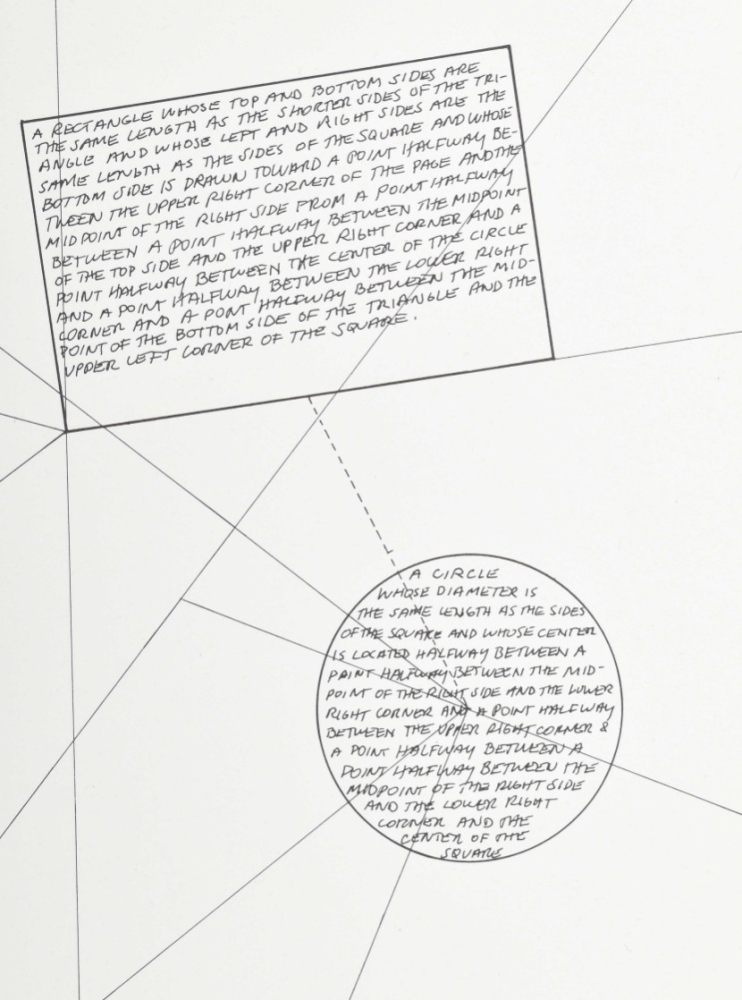 A RECTANGLE WHOSE TOP AND BOTTOM SIDES ARE
THE SAME LENGTH AS THE SHORTER SIDES OF THE TRI-
ANGLE AND WHOSE LEFT AND RIGHT SIDES ARE THE
SAME LENGTH AS THE SIDES OF THE SQUARE AND WHOSE
BOTTOM SIDE IS DRAWN TOWARD A POINT HALFWAY BE-
TWEEN THE UPPER RIGHT CORNER OF THE PAGE AND THE
MIDPOINT OF THE RIGHT SIDE FROM A POINT HALFWAY
BETWEEN A POINT HALFWAY BETWEEN THE MIDPOINT
OF THE TOP SIDE AND THE UPPER RIGHT CORNER AND A
POINT HALFWAY BETWEEN THE CENTER OF THE CIRCLE
AND A POINT HALFWAY BETWEEN THE LOWER RIGHT
CORNER AND A PONT HALFWAY BETWEEN THE MID-
POINT OF THE BOTTOM SIDE OF THE TRIANGLE AND THE
UPPER LEFT CORNER OF THE SQUARE.
A CIRCLE
WHOSE DIAMETER IS
THE SAME LENGTH AS THE SIDES
OF THE SQUARE AND WHOSE CENTER
IS LOCATED HALFWAY BETWEEN A
POINT HALFWAY BETWEEN THE MID-
POINT OF THE RIGHT SIDE AND THE LOWER
RIGHT CORNER AND A POINT HALFWAY
BETWEEN THE UPPER RIGHT CORNER &
A POINT HALFWAY BETWEEN A
POINT HALFWAY BETWEEN THE
MIDPOINT OF THE RIGHT SIDE
AND THE LOWER RIGHT
CORNER AND THE
CENTER OF THE
SQUARE